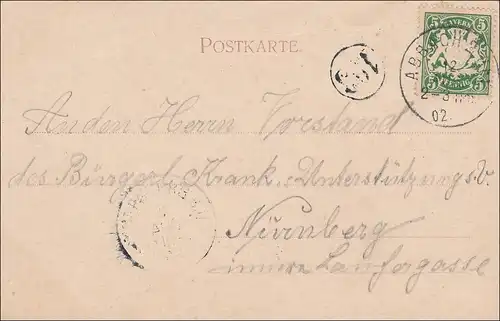 POSTKARTE.
5 BAYERN 5
5 PFENNIG 5
12
02.
An den Herrn Vorstand
des Bürgerl. Krank.-Unterstützungsv.
Nürnberg
innere Laufergasse